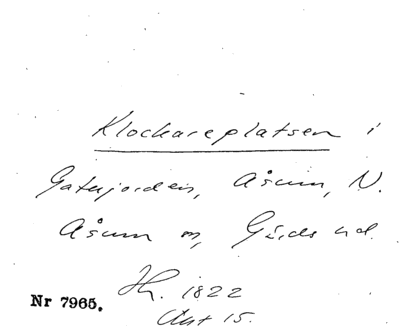 Klockareplatsen i
Gaterjorden, Åsum, N.
Åsum sn, Gärds hd.
Hh. 1822
Akt 15.
Nr 7965.